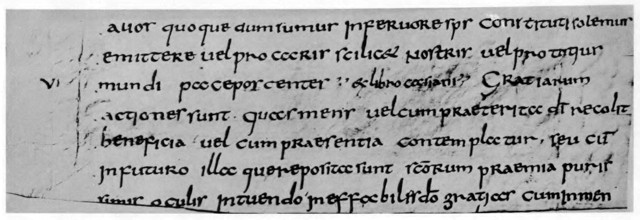 alios quoque dum sumus in feruore sps constituti solemus
emittere uel pro caris scilic& nostris uel pro totius
VI mundi pace poscentes & libro cassiani Gratiarum
actiones sunt quas mens uel cum praeterita di recolit
beneficia uel cum praesentia contemplatur, seu cū
in futuro illa quae reposita sunt scōrum praemia puris
simis oculis intuendo ineffabilis dō gratias cum inmen